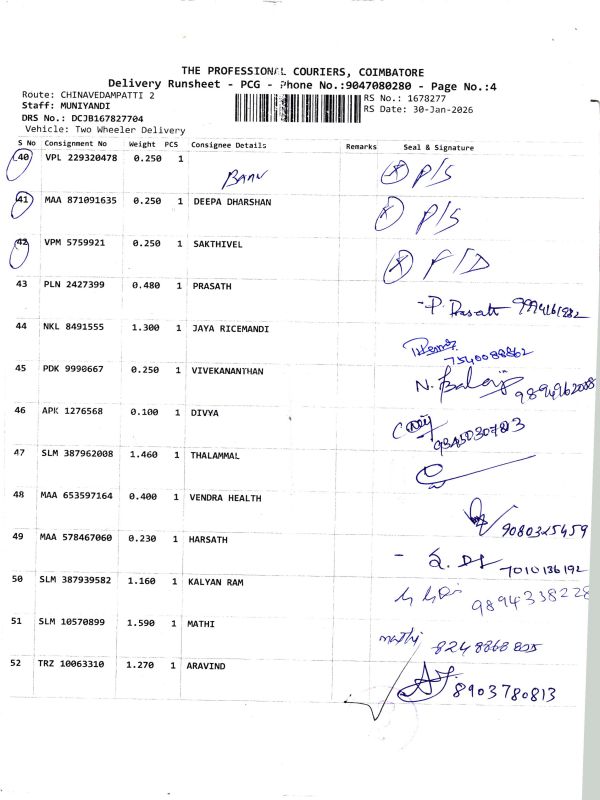 THE PROFESSIONAL COURIERS, COIMBATORE
Delivery Runsheet - PCG - Phone No.:9047080280 - Page No.:4
Route: CHINAVEDAMPATTI 2
RS No.: 1678277
Staff: MUNIYANDI
RS Date: 30-Jan-2026
DRS No.: DCJB167827704
Vehicle: Two Wheeler Delivery
S No Consignment No Weight PCS Consignee Details Remarks Seal & Signature
40 VPL 229320478 0.250 1 Banu P/S
41 MAA 871091635 0.250 1 DEEPA DHARSHAN P/S
42 VPM 5759921 0.250 1 SAKTHIVEL F/D
43 PLN 2427399 0.480 1 PRASATH
- P. Prasath
44 NKL 8491555 1.300 1 JAYA RICEMANDI
7540088862
45 PDK 9990667 0.250 1 VIVEKANANTHAN
N. Balaji 9894962008
46 APK 1276568 0.100 1 DIVYA
47 SLM 387962008 1.460 1 THALAMMAL
48 MAA 653597164 0.400 1 VENDRA HEALTH
9080325459
49 MAA 578467060 0.230 1 HARSATH
7010136192
50 SLM 387939582 1.160 1 KALYAN RAM
9894338228
51 SLM 10570899 1.590 1 MATHI
mathi 8248868825
52 TRZ 10063310 1.270 1 ARAVIND
8903780813